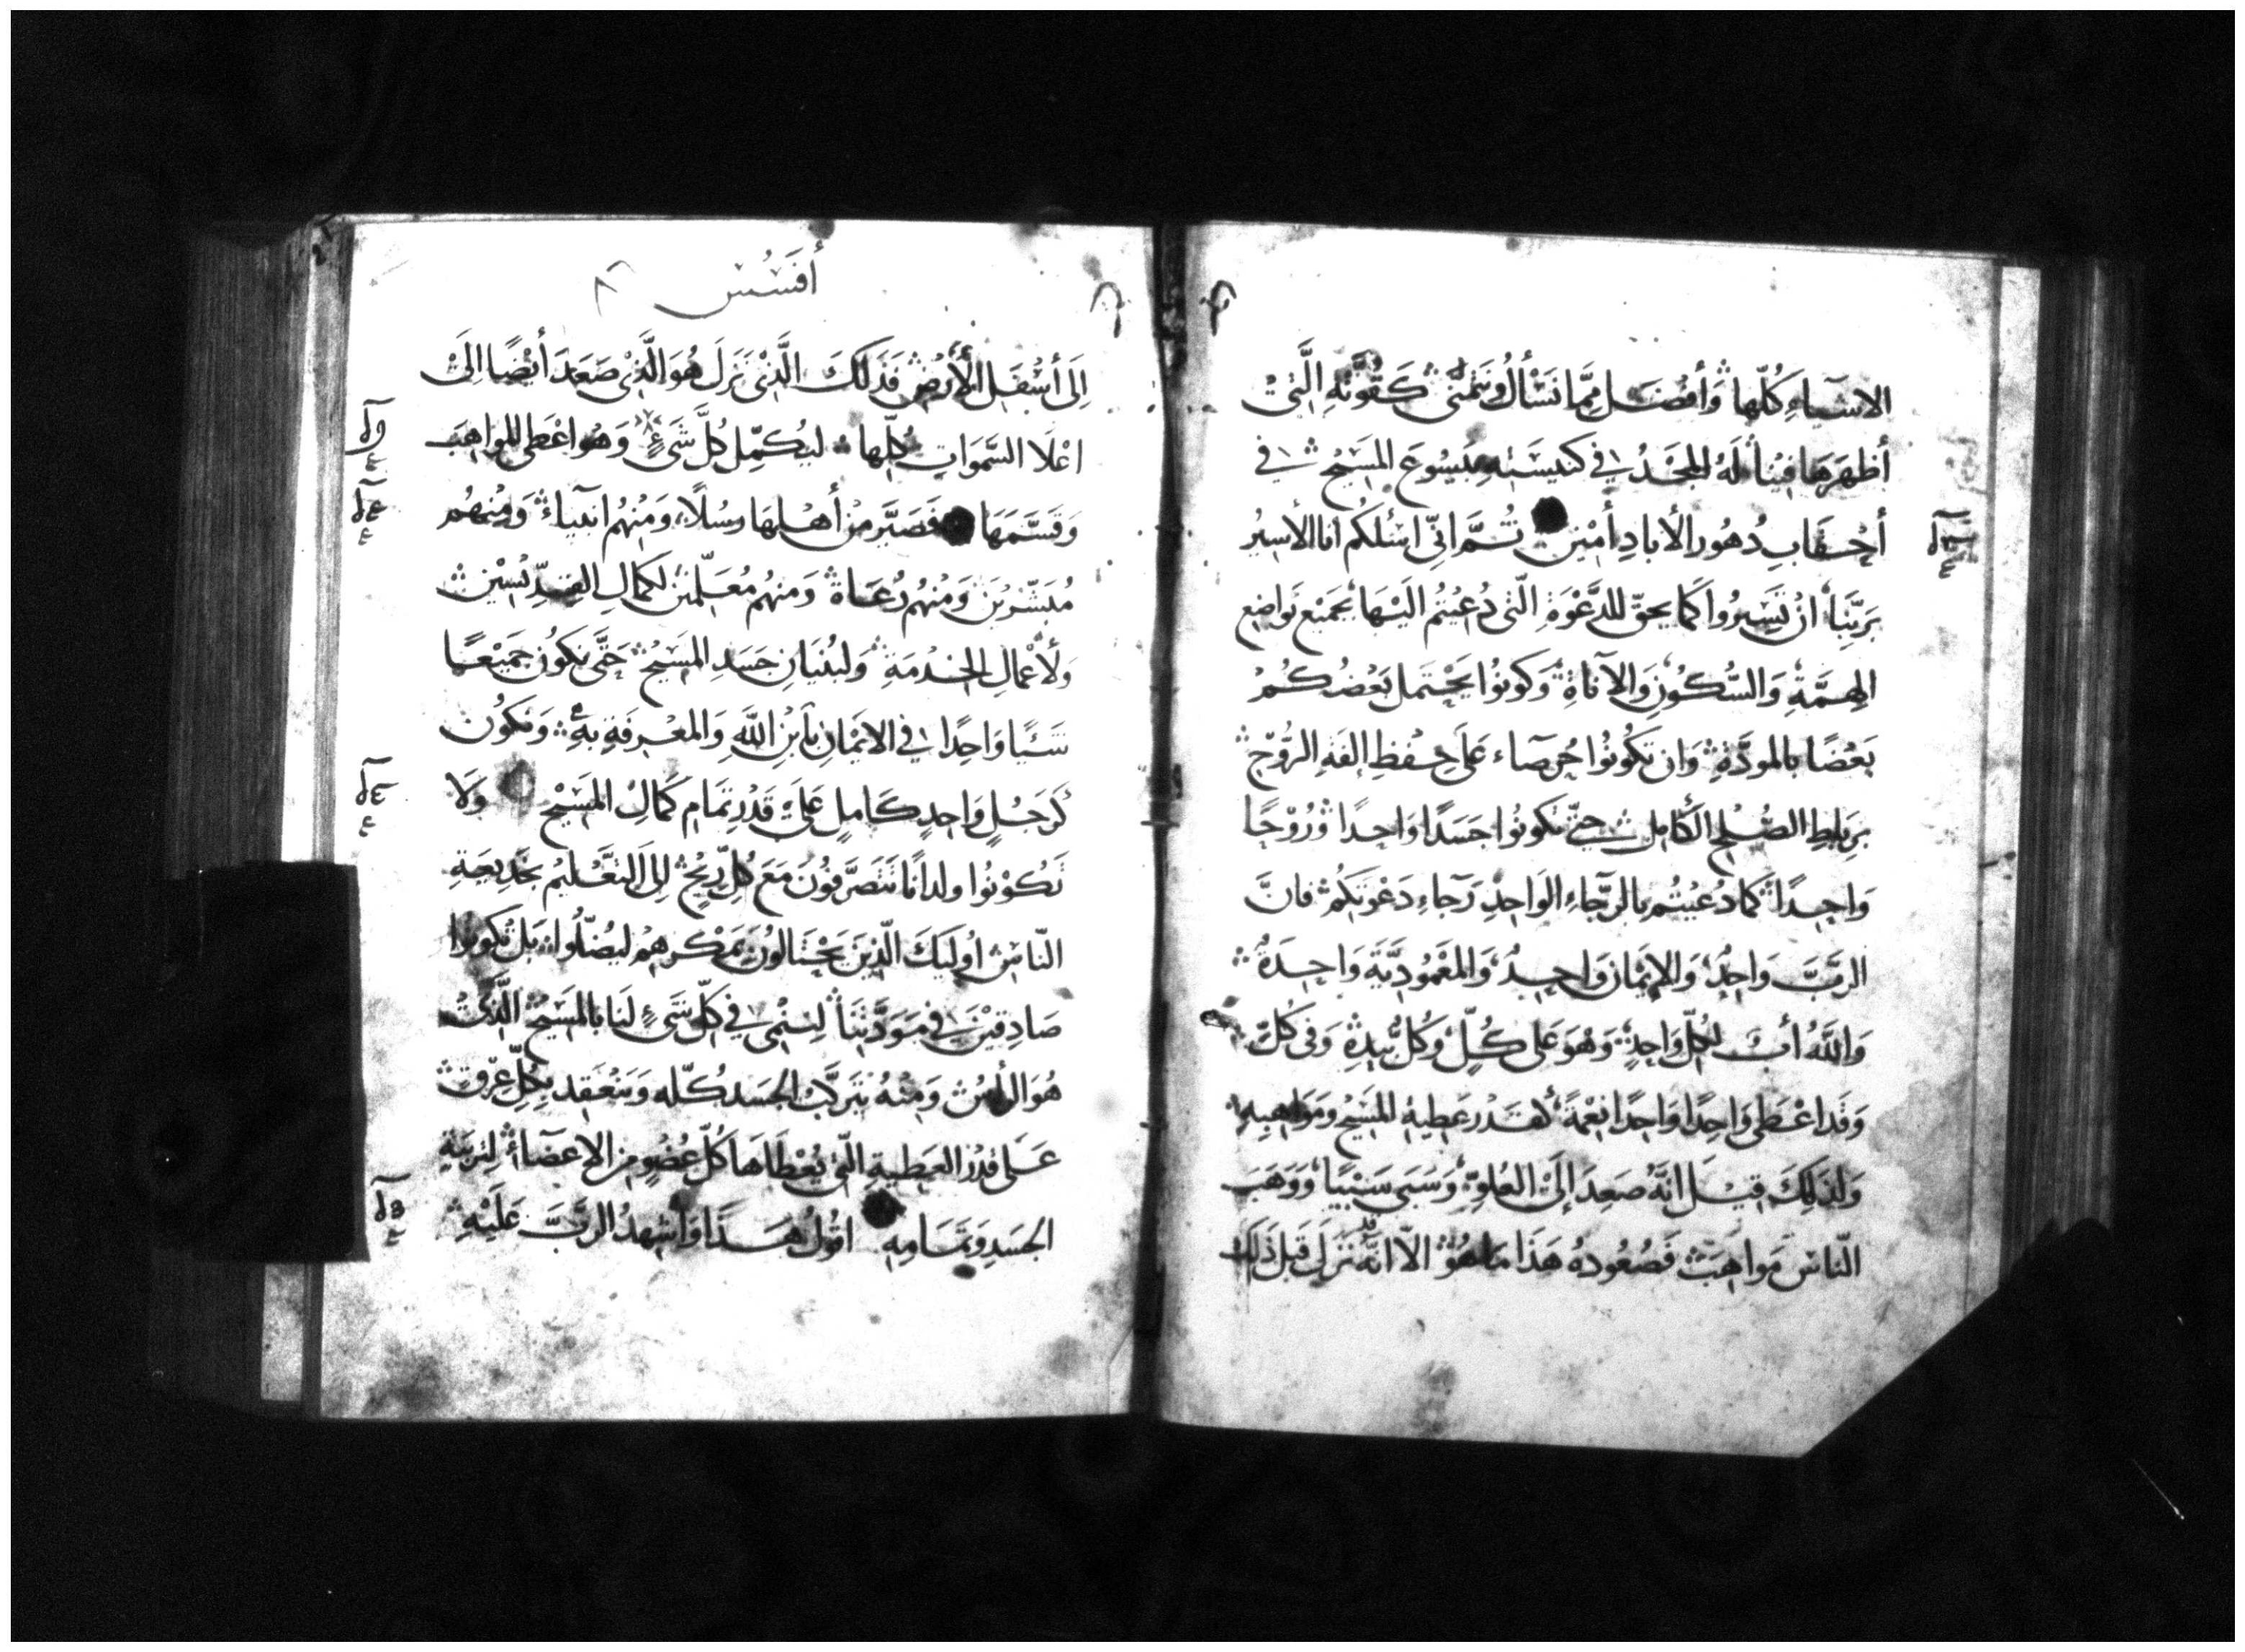 الاشيآءِ كُلّها وَأفضَل مِمَّا نَسْألُ وَنَتَمنَّى كَقُوَّتِهِ الَّتِيْ
أظهَرَهَا فيْنَا لَهُ المَجْدُ في كنيسَتِهِ بيَسُوعَ المَسِيْحُ في
أحْقَابِ دُهُور الأبادِ أمْيْن ثُمَّ انّي اسْئلكُم انا الأسِيْرُ
بِرَبّنَا انْ تَسِيْرُوا كَمَا يحقّ للدَّعْوَةِ الّتى دُعيْتُم اليْهَا بجَميْع تَواضع
الهِمَّةِ وَالسُّكُوْنِ وَالآناةِ وَكونُوا يَحْتَمل بَعْضكُمْ
بَعْضًا بالموَدَّةِ وَان تكُونُوا حُرصآء عَلَى حِفظِ إلفَةِ الرُّوْحْ
بِرِباطِ الصُّلحِ الكَامِل حتّى تكونُوا جَسَدًا وَاحِدًا وَرُوْحًا
وَاحِدًا كمَا دُعيْتُم بالرّجَآءِ الوَاحِدِ رَجآءِ دَعْوَتكُم فانَّ
الربَّ وَاحِدٌ وَالإيْمَان وَاحِدُ وَالمَعْمُودِيَّة وَاحِدَةُ
وَاللهُ أبُ لكُلّ وَاحِدٍ وَهُوَ عَلى كُلٍّ وَكُلُّ بيَدِهْ وَفي كُلّ
وَقَد اعْطَى وَاحِدًا وَاحِدًا نعْمَةً كقَدْر عَطيةِ المَسِيْحُ وَمَوَاهِبِهِ
وَلذَلِكَ قيْلَ انَّهُ صَعِدَ إلَىْ العُلوّ وَسَبَى سَبْيًا وَوَهَبَ
النّاسَ مَواهِبَ فصُعُودهُ هَذَا مَا هُوْ الّا انّهُ نَزلَ قبْل ذَلِكَ
أفسُس
اِلَى أسْفَلِ الأرْضْ فَذَلكَ الَّذِيْ نَزلَ هُوَ الَّذِيْ صَعدَ أيْضًا الَىْ
اعْلَا السَّمَواتِ كُلّها ليُكمِّل كُلَّ شَيءٍ وَهُو اعْطى المواهِبَ
وَقَسَّمَهَا فَصَيَّر مِنْ أهْلهَا رسُلًا وَمِنْهُم انبيآءَ وَمِنْهُم
مُبَشّرِيْنَ وَمِنْهُم رُعَاةً وَمنهُم مُعَلّمين لكمالِ القدِّيْسِيْن
وَلأعْمالِ الخدْمَةِ وَلبُنْيَانِ جَسَدِ المَسِيْحُ حَتَّى نكونُ جَميْعًا
شَيْئًا وَاحِدًا في الايْمَانِ بابْنِ اللهِ وَالمَعْرفَةِ بهِ وَنَكُونَ
كرَجُلٍ وَاحِدٍ كَاملٍ عَلَى قَدْرِ تَمَام كَمَالِ المَسِيْحْ وَلا
نَكُوْنُوا ولدانًا نَتَصَرَّفوْنَ مَعَ كُلّ رِيْحٍ إلى التَعْليْمْ بخَدِيعَةِ
النّاسْ اولَئِكَ الّذِينَ يَحْتَالُونَ بمَكْرهِمْ ليُضلّوا بَل نكونُوا
صَادِقيْنَ في مَوَدَّتنَا لِنَنْمى في كُلّ شَيءٍ لنَا بالمَسِيْحُ الَّذِيْ
هُوَ الرأسُ وَمِنْهُ يتَركَّبُ الجَسَد كُلّه وَيَنْعَقِد بكُلّ عِرْقٍ
عَلى قدْر العَطيةِ الّتى يُعْطَاهَا كُلّ عُضْوٍ مِن الاعضَآءْ لِتَربيَةِ
الجسَدِ وَتمَامِهِ اقُولُ هَذَا وَاشهدُ الرَّبَّ عَلَيْهِ